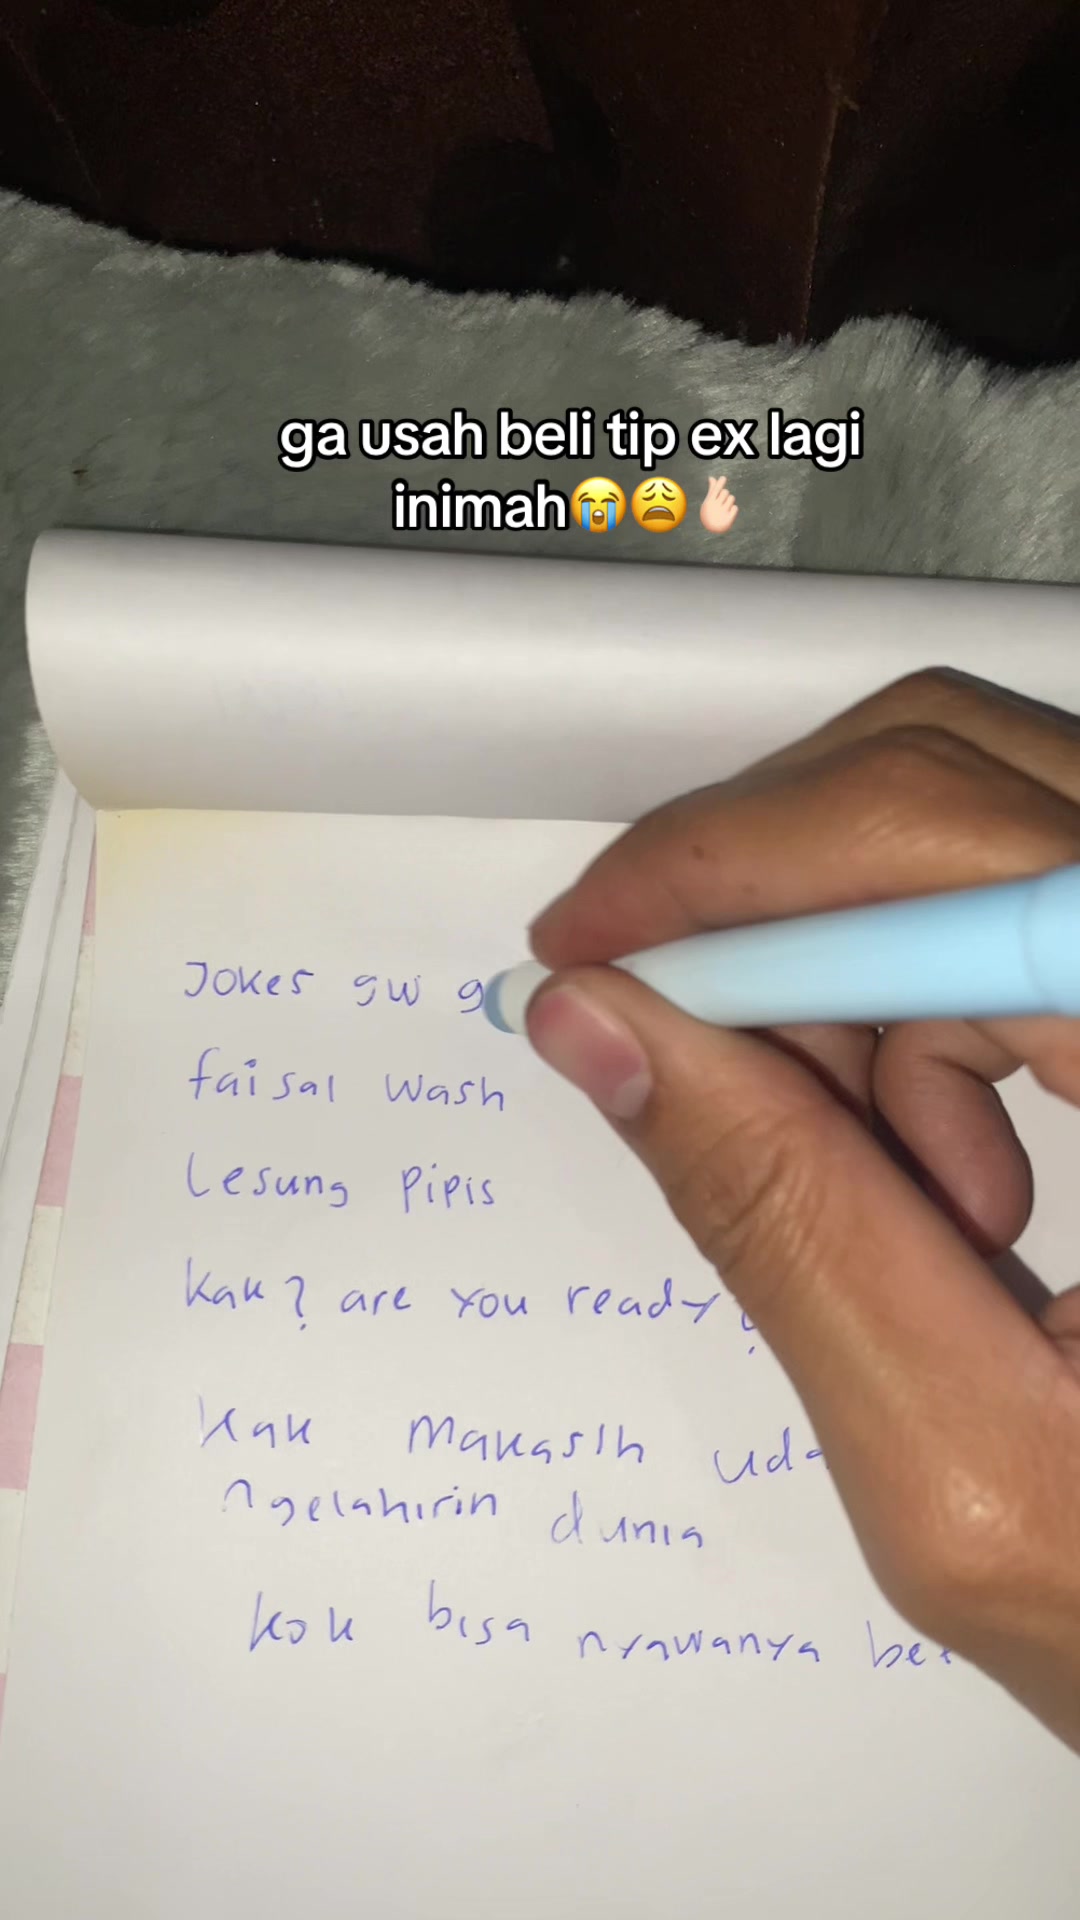 ga usah beli tip ex lagi
inimah😭😩🫰🏻
Jokes gw
faisal wash
Lesung pipis
kak? are you ready?
kak makasih
ngelahirin dunia
kok bisa nyawanya